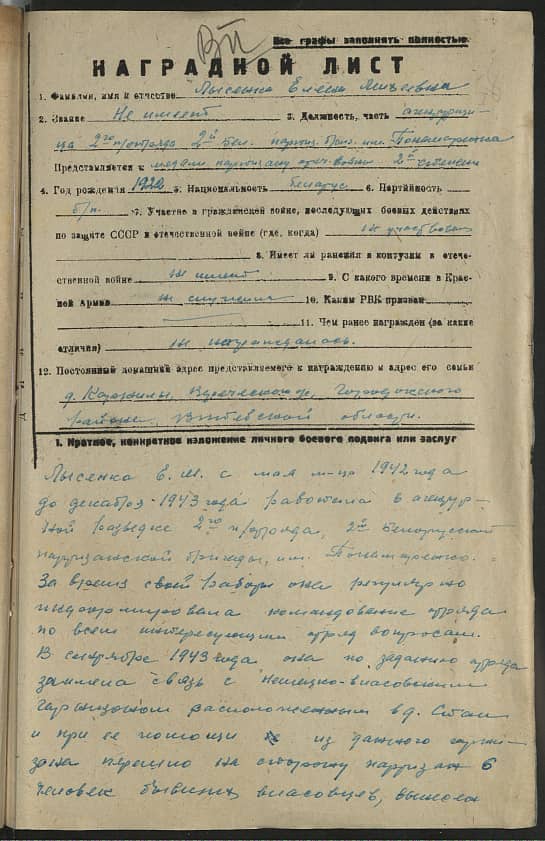 ВП
Все графы заполнять полностью
НАГРАДНОЙ ЛИСТ
1. Фамилия, имя и отчество Лысенко Елена
2. Звание Не имеет 3. Должность, часть агентурщи-
ца 2го п/отряда 2й Бел. партиз. бриг. им. Пономаренко
Представляется к медали партизану отеч. войны 2й степени
4. Год рождения 1922 5. Национальность беларус 6. Партийность
б/п. 7. Участие в гражданской войне, последующих боевых действиях
по защите СССР и отечественной войне (где, когда) не участвовал
8. Имеет ли ранения и контузии в отече-
ственной войне не имеет 9. С какого времени в Крас-
ной Армии не служила 10. Каким РВК призван
11. Чем ранее награжден (за какие
отличия) не награждалась.
12. Постоянный домашний адрес представляемого к награждению и адрес его семьи
д. Городокского
района Витебской области.
1. Краткое, конкретное изложение личного боевого подвига или заслуг
Лысенко Е. М. с мая м-ца 1942 года
до декабря 1943 года работала в агентур-
ной разведке 2го п/отряда, 2й Белорусской
партизанской бригады, им. Пономаренко.
За время своей работы она регулярно
информировала командование отряда
по всем интересующим отряд вопросам.
В сентябре 1943 года она по заданию отряда
заимела связь с немецко-власовским
гарнизоном расположенным в д.
и при ее помощи из данного гарни-
зона перешло на сторону партизан 6
человек бывших власовцев,